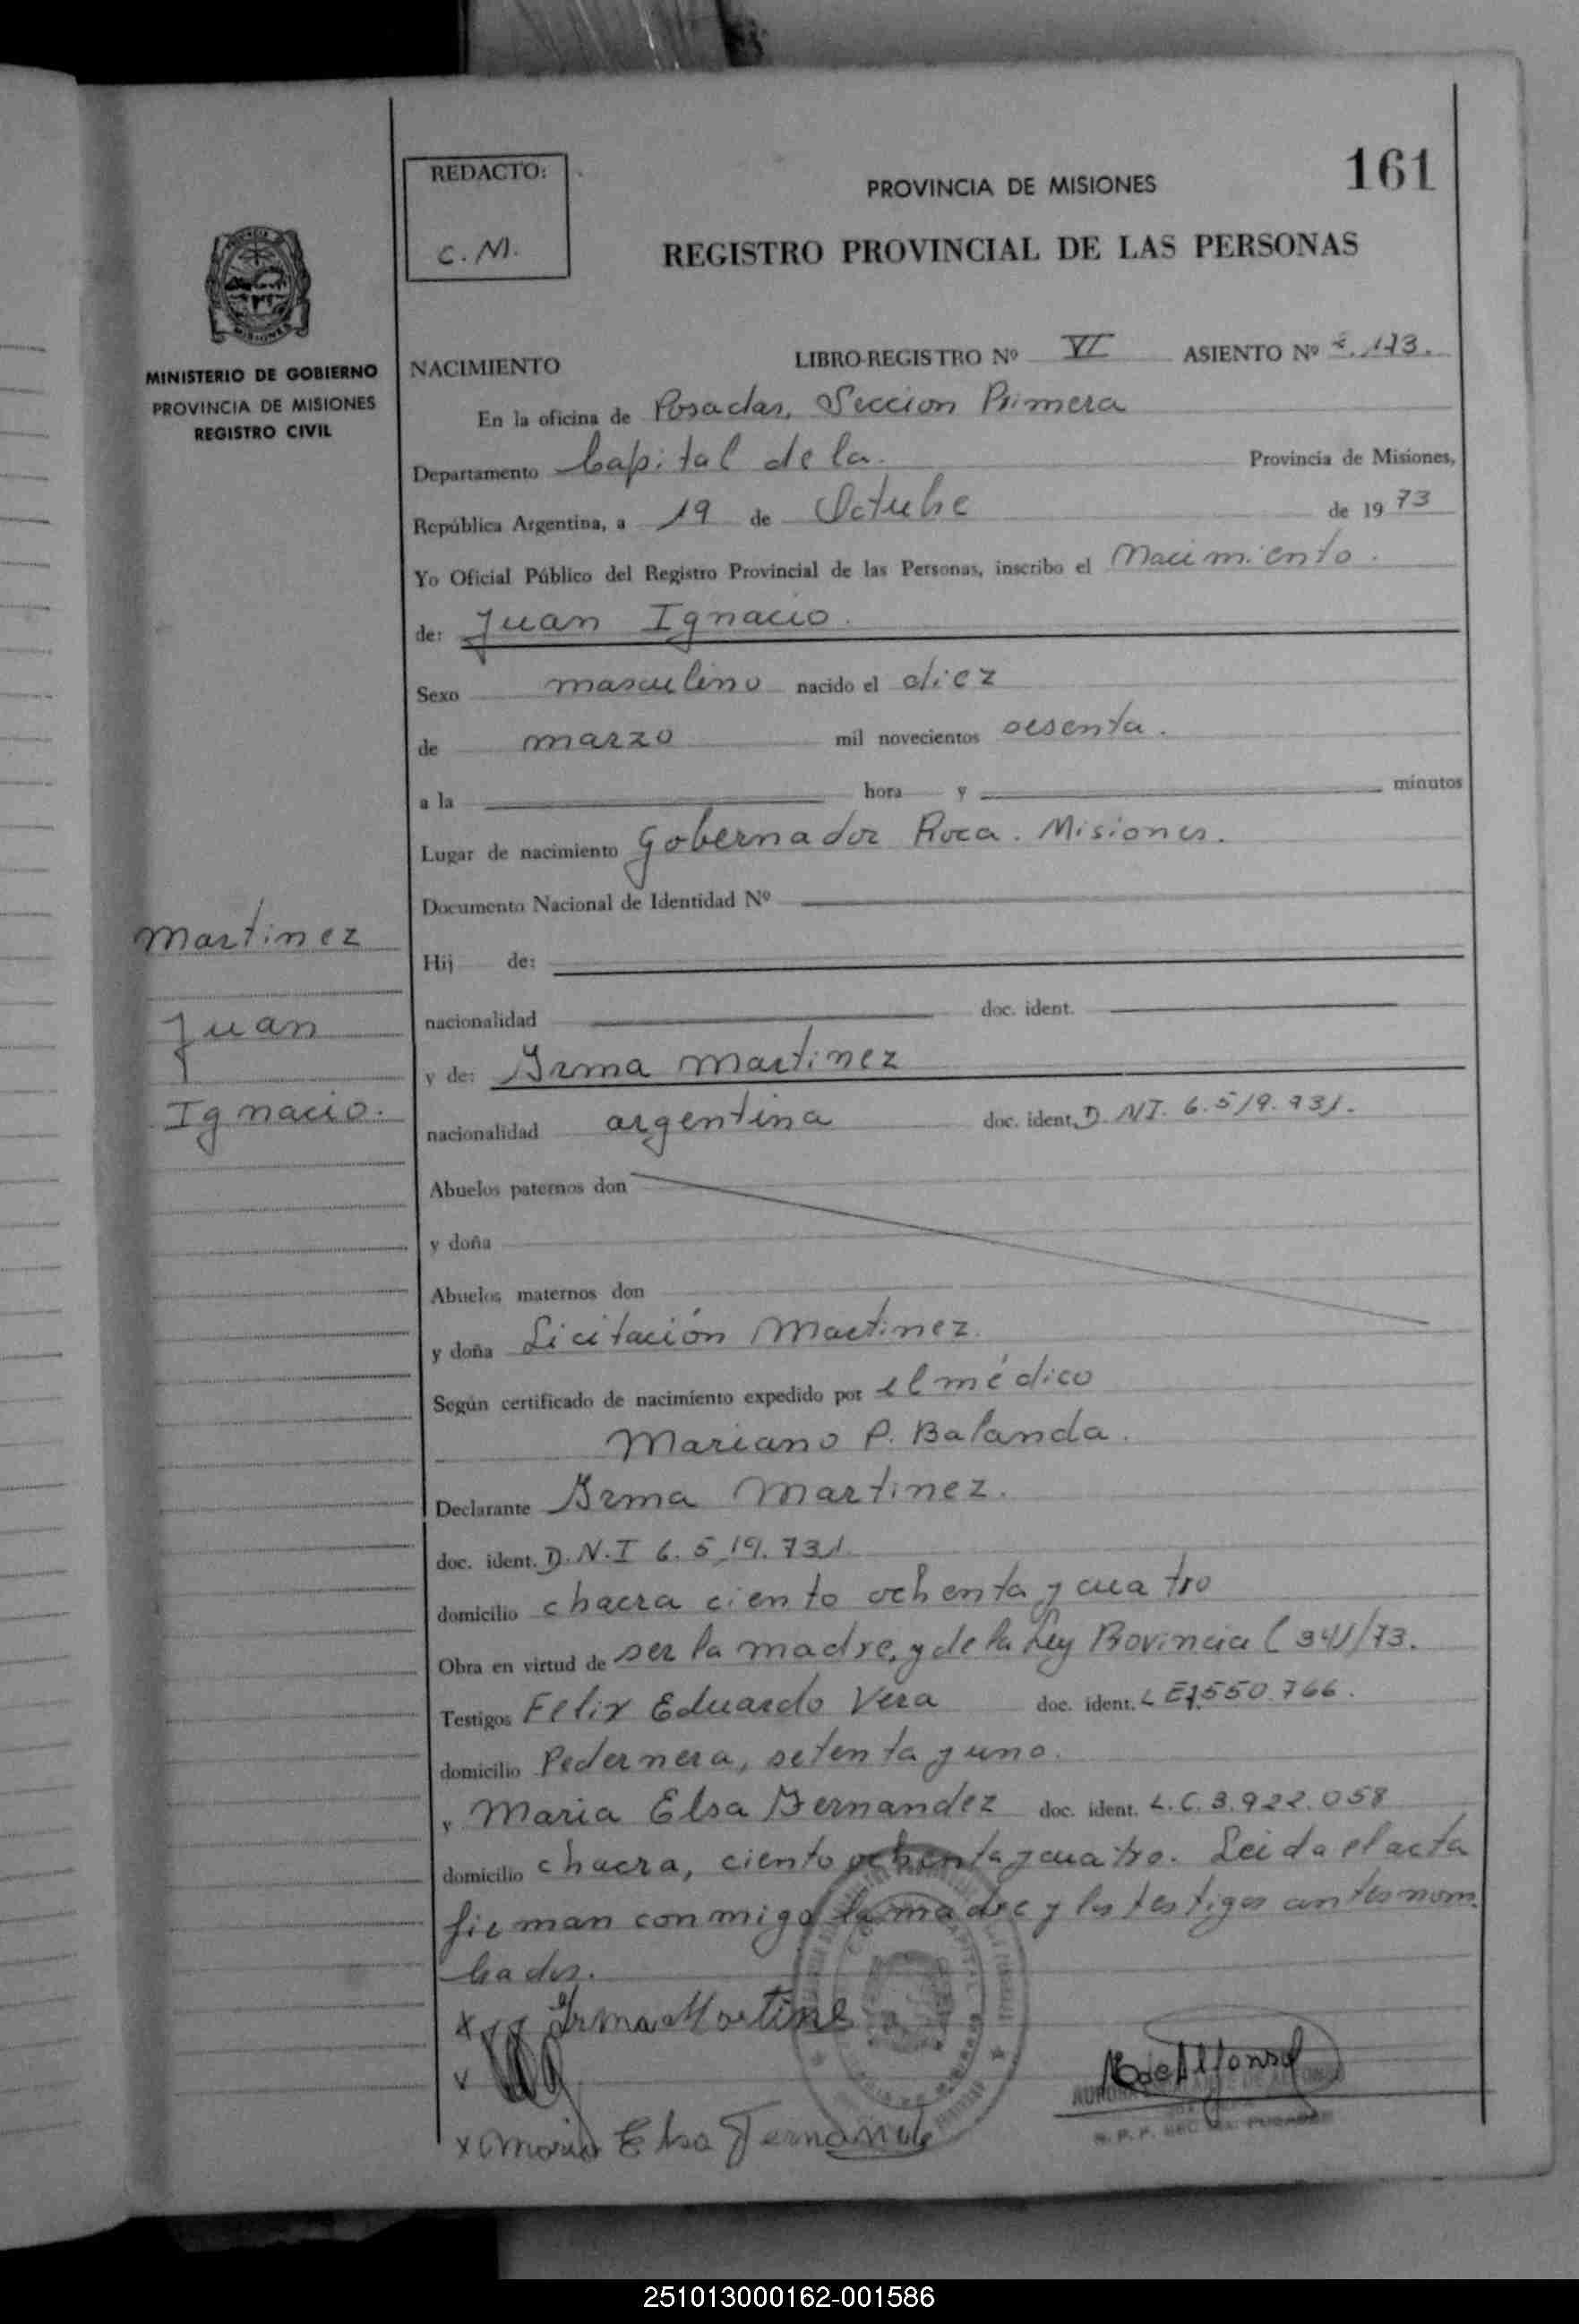 161
REDACTO:
C. M.
PROVINCIA DE MISIONES
REGISTRO PROVINCIAL DE LAS PERSONAS
MINISTERIO DE GOBIERNO
PROVINCIA DE MISIONES
REGISTRO CIVIL
NACIMIENTO LIBRO-REGISTRO Nº VI ASIENTO Nº
En la oficina de Posadas, Seccion Primera
Departamento Capital de la Provincia de Misiones,
República Argentina, a 19 de Octubre de 1973
Yo Oficial Público del Registro Provincial de las Personas, inscribo el Nacimiento.
de: Juan Ignacio.
Sexo masculino nacido el diez
de marzo mil novecientos sesenta.
a la hora y minutos
Lugar de nacimiento Gobernador Roca. Misiones.
Documento Nacional de Identidad Nº
Martinez
Juan
Ignacio.
Hij de:
nacionalidad doc. ident.
y de: Irma Martinez
nacionalidad argentina doc. ident. D.NI. 6.519.731.
Abuelos paternos don
y doña
Abuelos maternos don
y doña Licitación Martinez.
Según certificado de nacimiento expedido por el médico
Mariano P. Balanda.
Declarante Irma Martinez.
doc. ident. D.N.I 6.519.731.
domicilio chacra ciento ochenta y cuatro
Obra en virtud de ser la madre, y de la Ley Provincial 341/73.
Testigos Felix Eduardo Vera doc. ident. L E 7.550.766.
domicilio Pedernera, setenta y uno.
y Maria Elsa Fernandez doc. ident. L.C. 3.922.058
domicilio chacra, ciento ochenta y cuatro. Leida el acta
firman conmigo la madre y los testigos antes nom
brados.
x Irma Martine
x
x Maria Elsa Fernande
de Alfonso
251013000162-001586